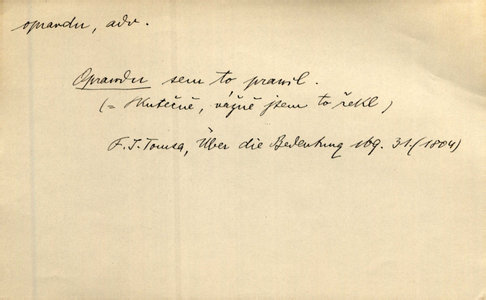 opravdu, adv.
Opravdu sem to pravil.
(= Skutečně, vážně jsem to řekl)
F. J. Tomsa, Über die Bedeutung 169. 31. (1804)